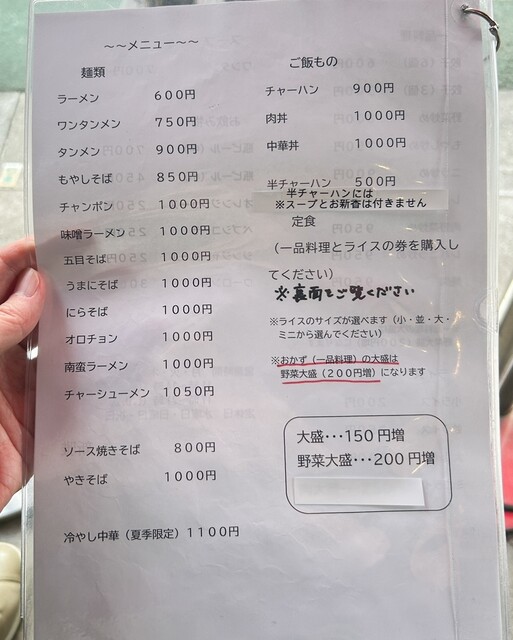 ～～メニュー～～
麺類
ラーメン 600円
ワンタンメン 750円
タンメン 900円
もやしそば 850円
チャンポン 1000円
味噌ラーメン 1000円
五目そば 1000円
うまにそば 1000円
にらそば 1000円
オロチョン 1000円
南蛮ラーメン 1000円
チャーシューメン 1050円
ソース焼きそば 800円
やきそば 1000円
冷やし中華（夏季限定）1100円
ご飯もの
チャーハン 900円
肉丼 1000円
中華丼 1000円
半チャーハン 500円
半チャーハンには
※スープとお新香は付きません
定食
（一品料理とライスの券を購入し
てください）
※裏面をご覧ください
※ライスのサイズが選べます（小・並・大・
ミニから選んでください）
※おかず（一品料理）の大盛は
野菜大盛（200円増）になります
大盛･･･150円増
野菜大盛･･･200円増